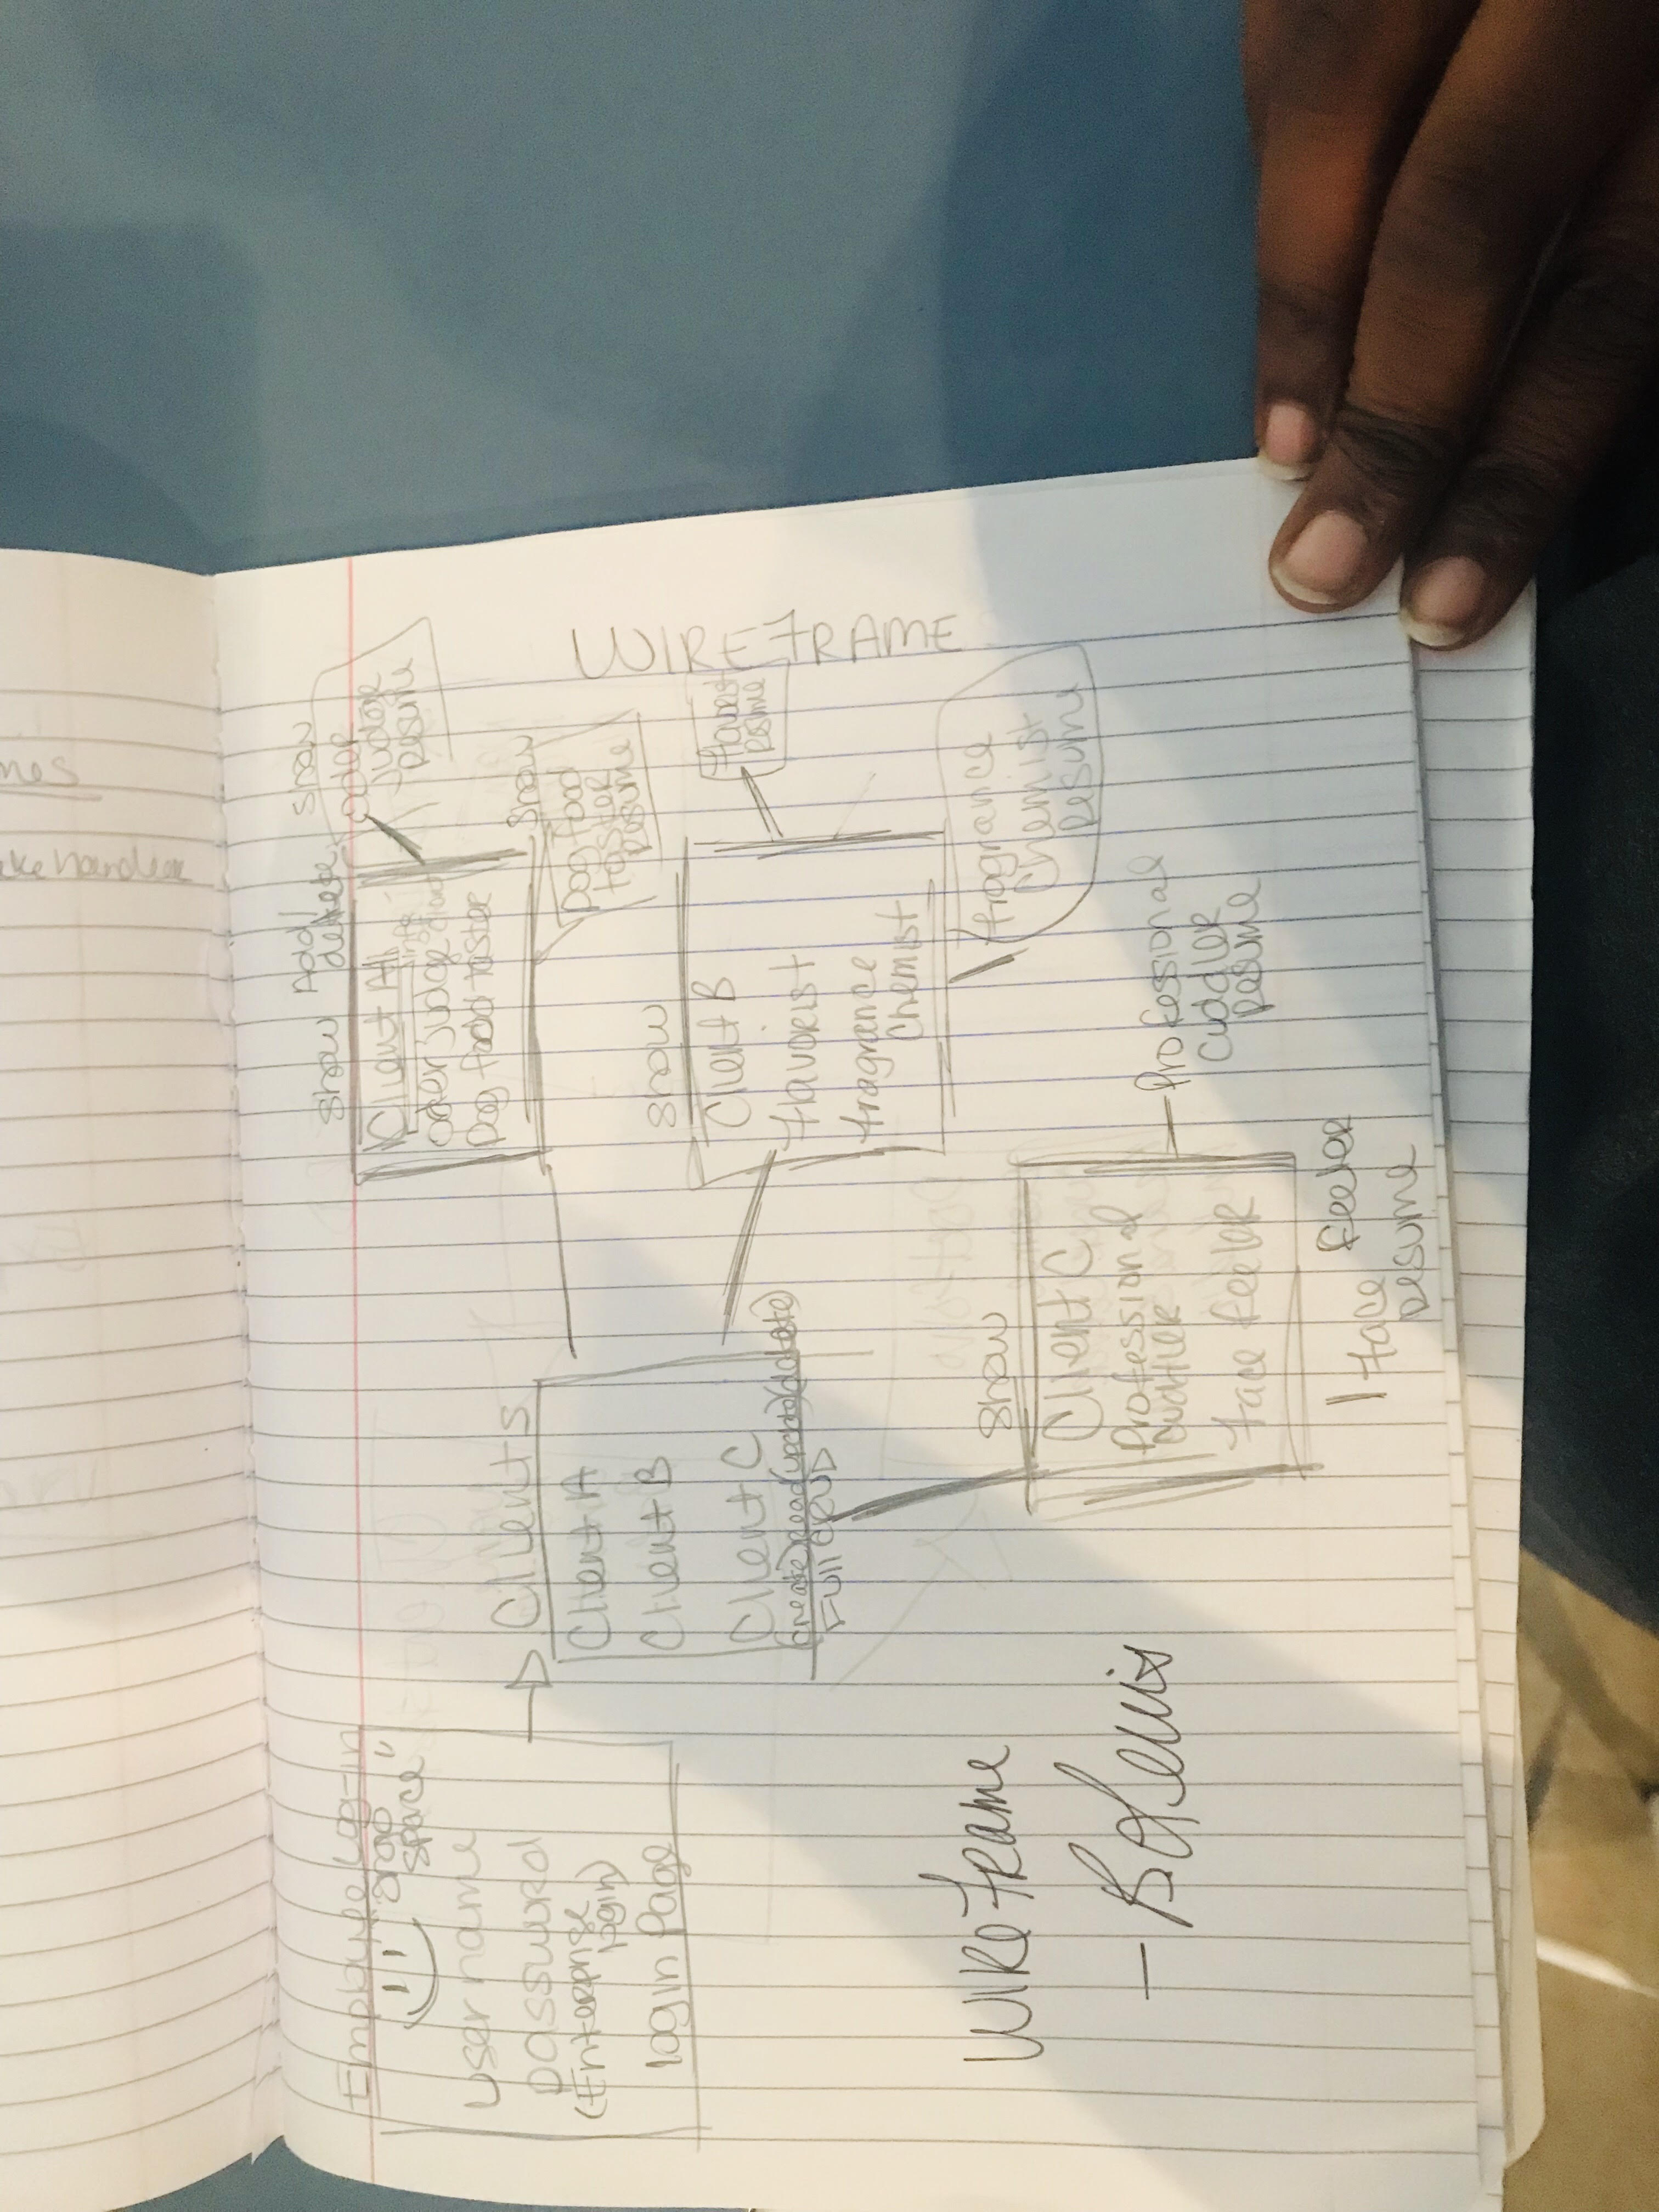 WIREFRAME
Employee Log-in
"2100
space"
user name
password
(Enterprise
login)
login Page
Clients
Client A
Client B
Client C
(create) read (update) (delete)
Full CRUD
show Add
delete
Client A
oder judge
Dog food taster
show
oder
judge
resume
show
Dog food
taster
resume
show
Client B
Flavorist
fragrance
chemist
Flavorist
resume
fragrance
chemist
resume
show
Client C
Professional
cuddler
face feeler
Professional
cuddler
resume
face feeler
resume
WireFrame
mes